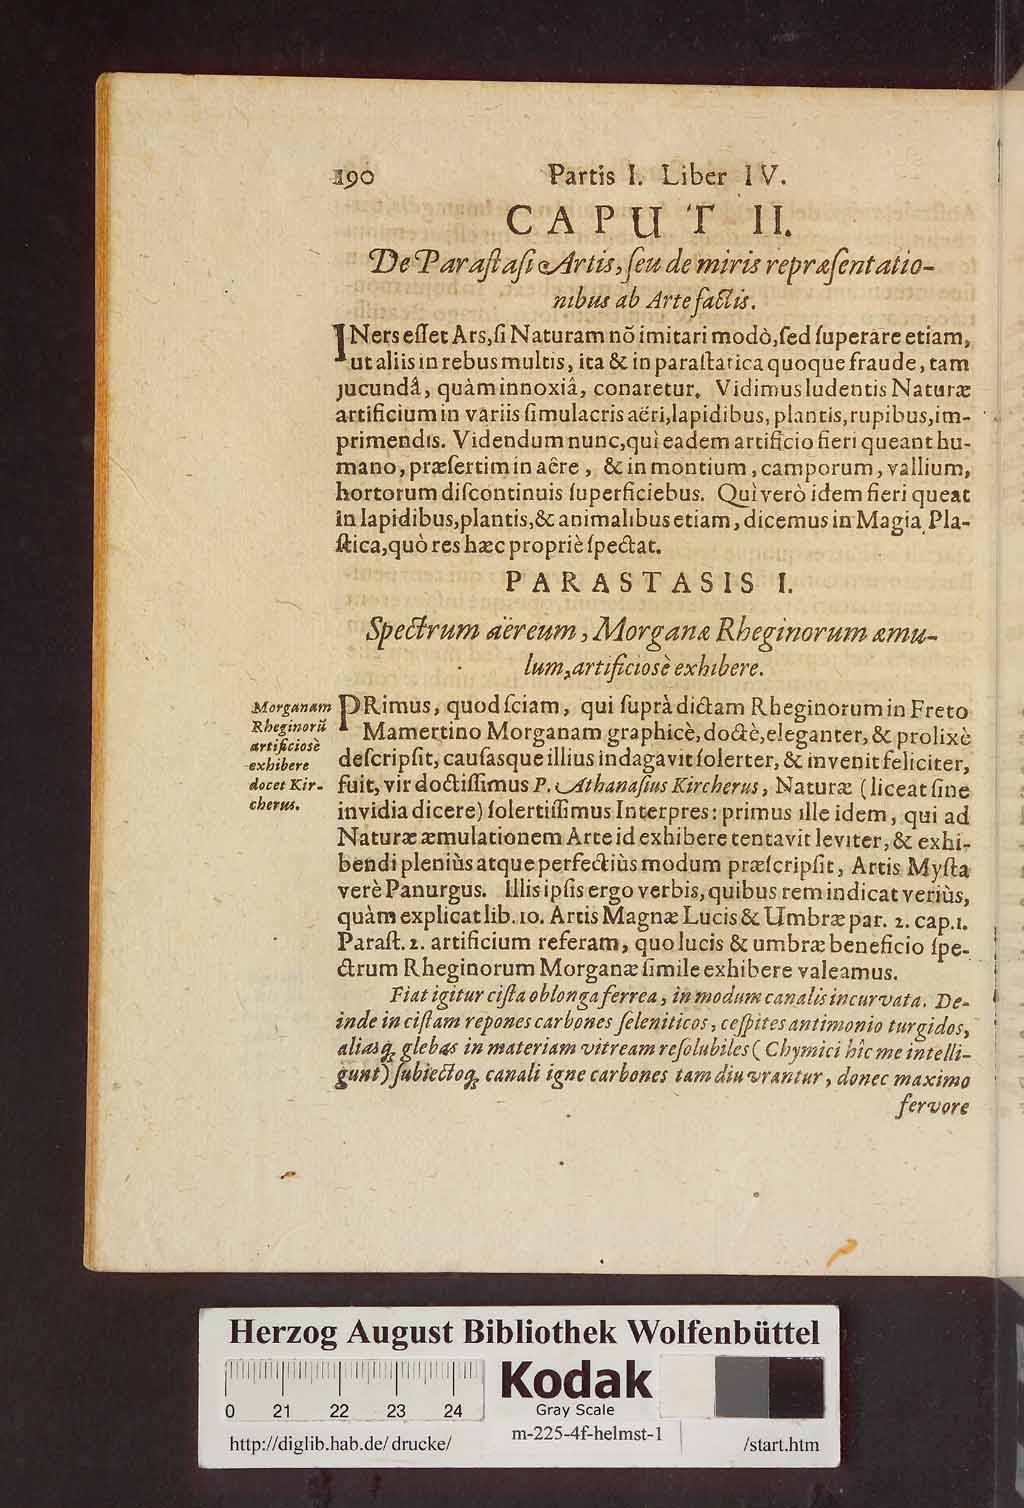 190 Partis I. Liber IV.
CAPUT II.
De Parastasi Artis, seu de miris repræsentatio-
nibus ab Arte factis.
INers esset Ars, si Naturam nõ imitari modò, sed superare etiam,
ut aliis in rebus multis, ita & in parastatica quoque fraude, tam
jucundâ, quàm innoxiâ, conaretur. Vidimus ludentis Naturæ
artificium in variis simulacris aëri, lapidibus, plantis, rupibus, im-
primendis. Videndum nunc, quì eadem artificio fieri queant hu-
mano, præsertim in aêre, & in montium, camporum, vallium,
hortorum discontinuis superficiebus. Quì verò idem fieri queat
in lapidibus, plantis, & animalibus etiam, dicemus in Magia Pla-
stica, quò res hæc propriè spectat.
PARASTASIS I.
Spectrum aëreum, Morganæ Rheginorum æmu-
lum, artificiosè exhibere.
Morganam
Rheginorũ
artificiosè
exhibere
docet Kir-
cherus.
PRimus, quod sciam, qui suprà dictam Rheginorum in Freto
Mamertino Morganam graphicè, doctè, eleganter, & prolixè
descripsit, causasque illius indagavit solerter, & invenit feliciter,
fuit, vir doctissimus P. Athanasius Kircherus, Naturæ (liceat sine
invidia dicere) solertissimus Interpres: primus ille idem, qui ad
Naturæ æmulationem Arte id exhibere tentavit leviter, & exhi-
bendi pleniùs atque perfectiùs modum præscripsit, Artis Mysta
verè Panurgus. Illis ipsis ergo verbis, quibus rem indicat veriùs,
quàm explicat lib. 10. Artis Magnæ Lucis & Umbræ par. 2. cap. 1.
Parast. 2. artificium referam, quo lucis & umbræ beneficio spe-
ctrum Rheginorum Morganæ simile exhibere valeamus.
Fiat igitur cista oblonga ferrea, in modum canalis incurvata. De-
inde in cistam repones carbones seleniticos, cespites antimonio turgidos,
aliasq; glebas in materiam vitream resolubiles (Chymici hîc me intelli-
gunt) subiectoq; canali igne carbones tam diu vrantur, donec maximo
fervore
Herzog August Bibliothek Wolfenbüttel
0 21 22 23 24
Kodak
Gray Scale
http://diglib.hab.de/drucke/ m-225-4f-helmst-1 /start.htm